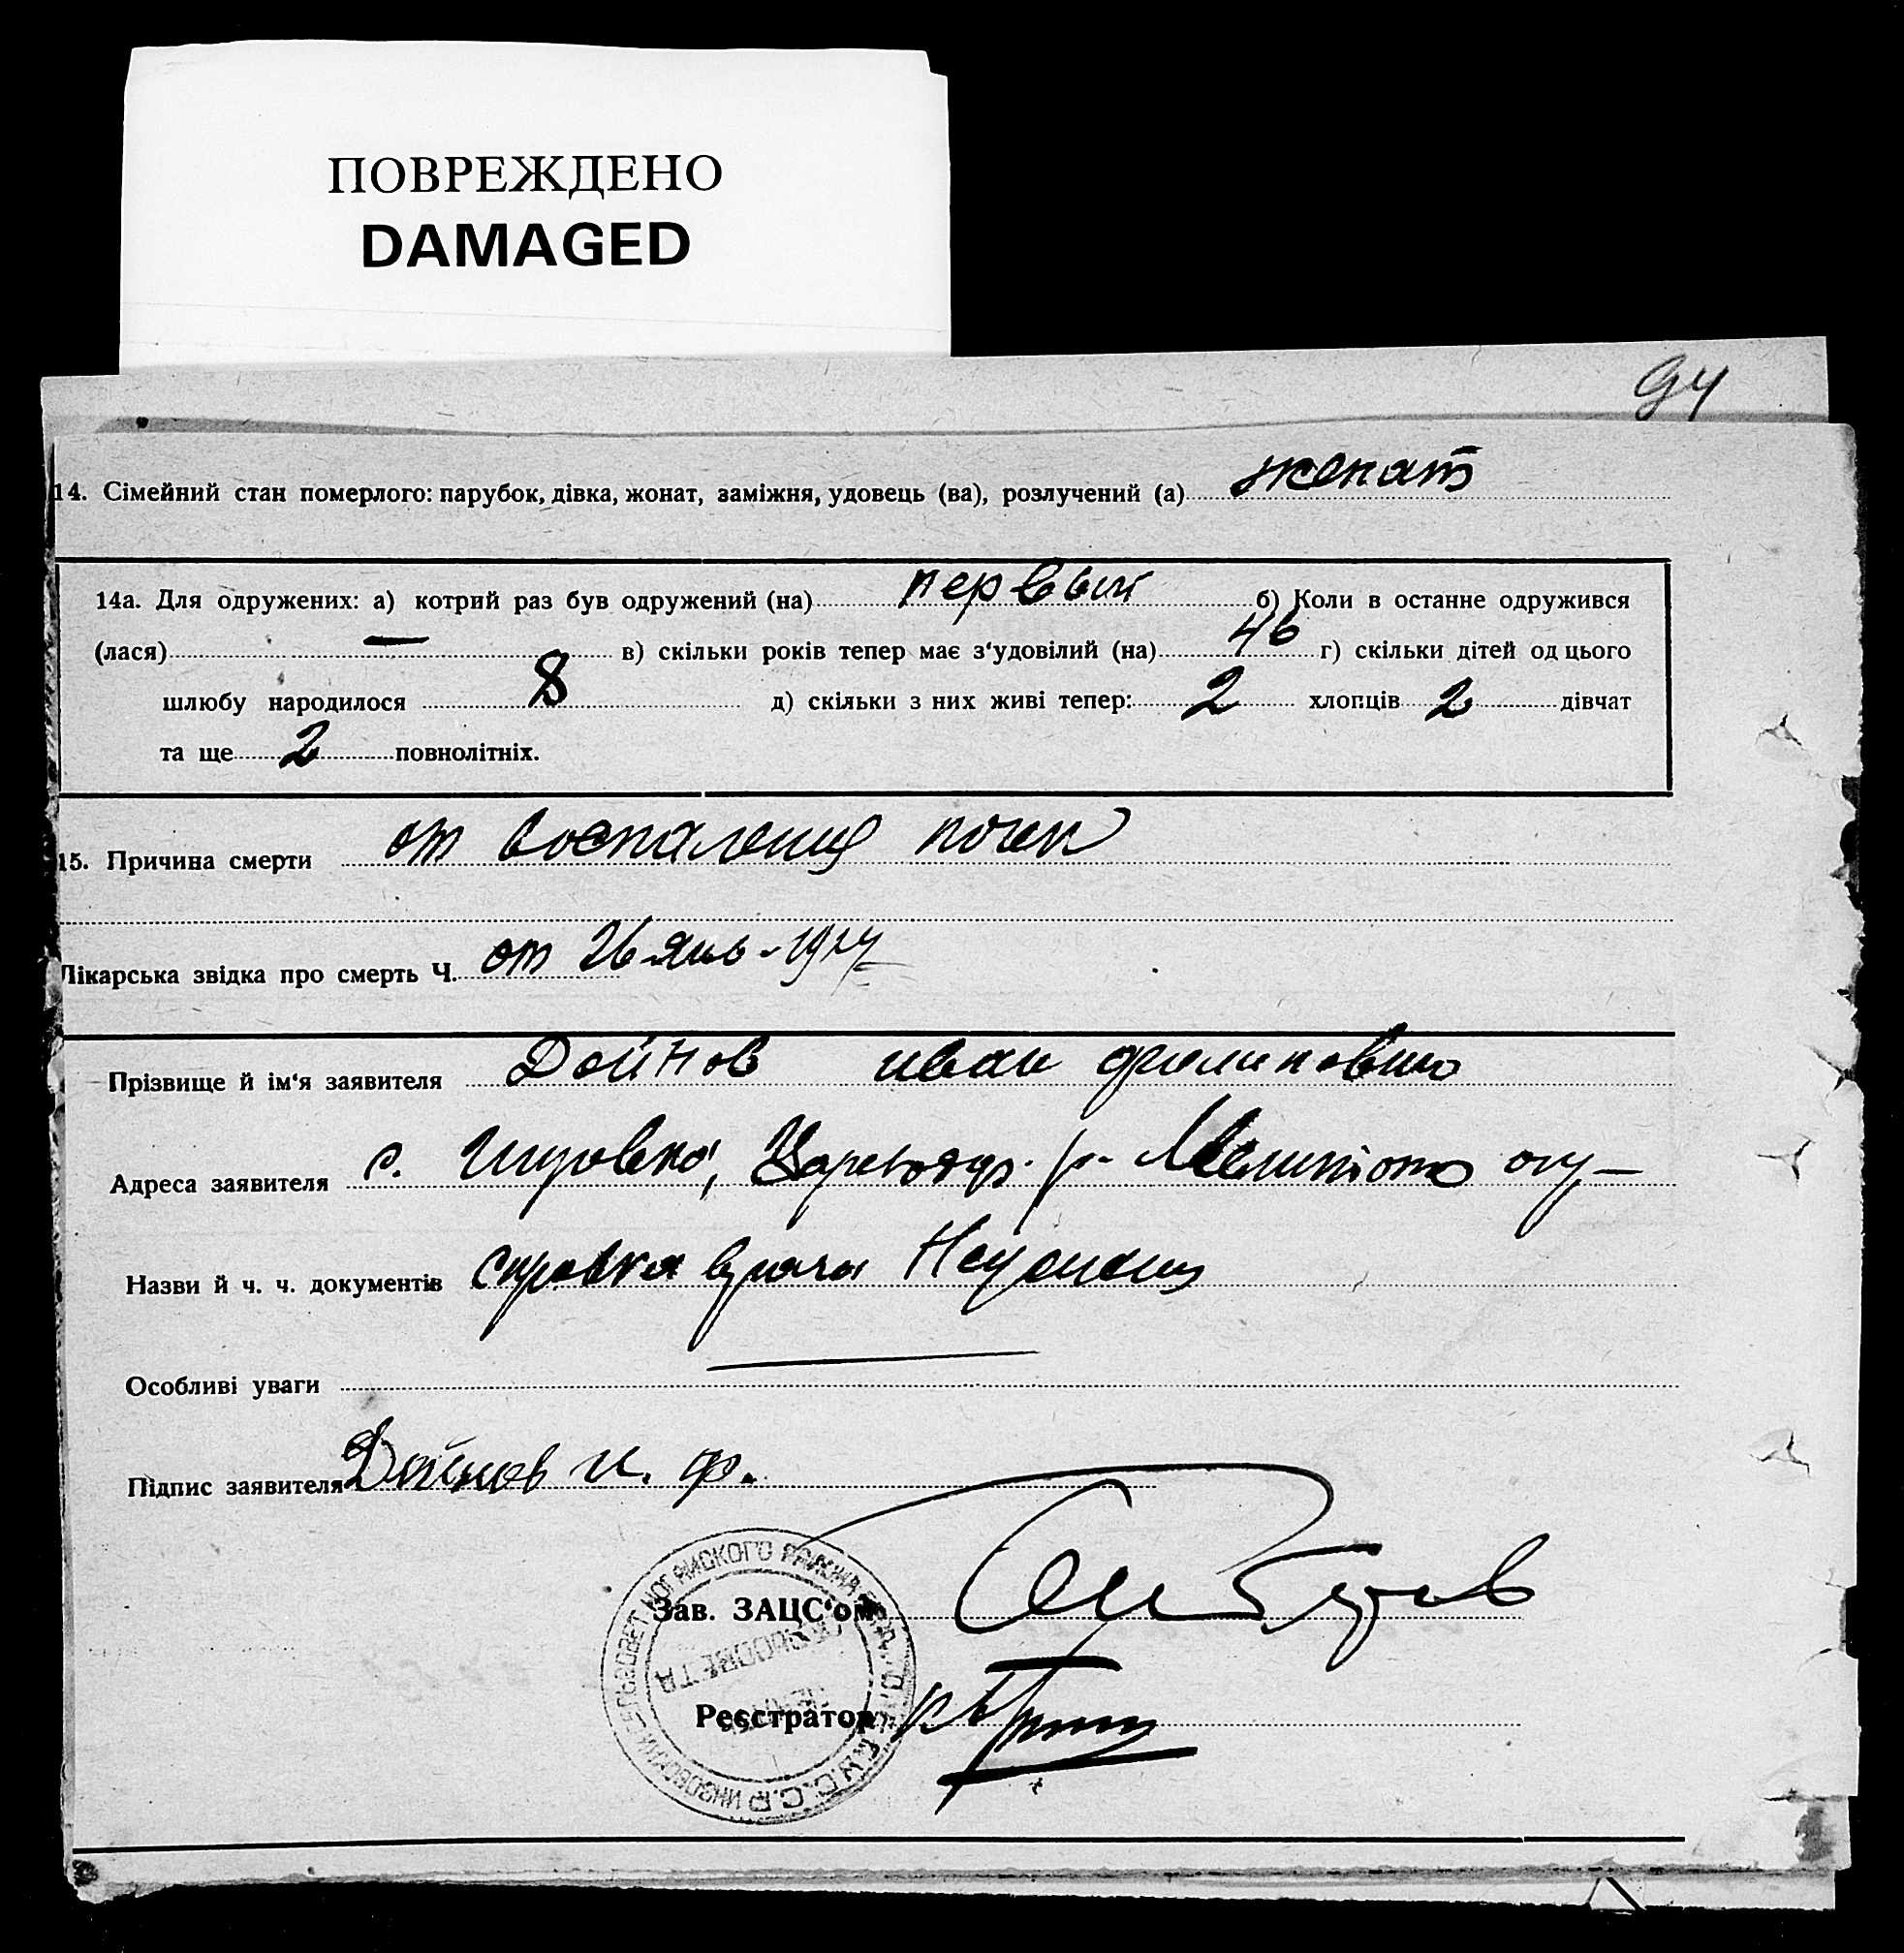 ПОВРЕЖДЕНО
DAMAGED
94
14. Сімейний стан померлого: парубок, дівка, жонат, заміжня, удовець (ва), розлучений (а) женат
14а. Для одружених: а) котрий раз був одружений (на) первый б) Коли в останне одружився
(лася) — в) скільки років тепер має з‘удовілий (на) 46 г) скільки дітей од цього
шлюбу народилося 8 д) скільки з них живі тепер: 2 хлопців 2 дівчат
та ще 2 повнолітніх.
15. Причина смерти от воспаления почек
Лікарська звідка про смерть Ч. от 26 янв-
Прізвище й ім‘я заявителя Дойнов иван
Адреса заявителя с.
Назви й ч. ч. документів справка врача
Особливі уваги
Підпис заявителя Дойнов и. ф.
Зав. ЗАЦС‘ом
Реєстратор